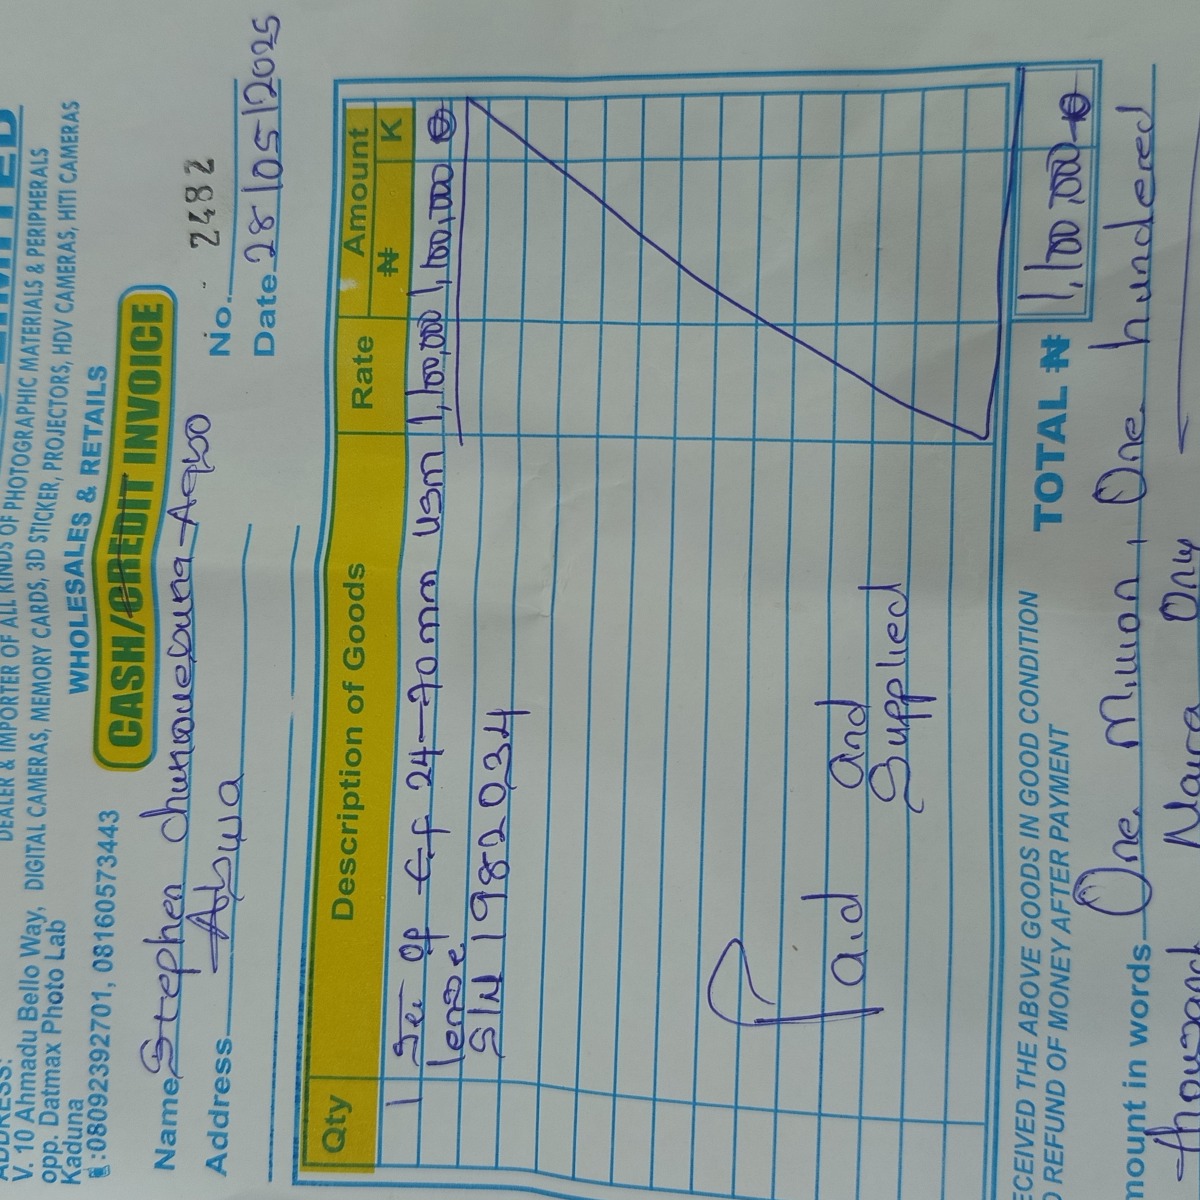 LIMITED
DEALER & IMPORTER OF ALL KINDS OF PHOTOGRAPHIC MATERIALS & PERIPHERALS
DIGITAL CAMERAS, MEMORY CARDS, 3D STICKER, PROJECTORS, HDV CAMERAS, HITI CAMERAS
WHOLESALES & RETAILS
ADDRESS:
V. 10 Ahmadu Bello Way,
opp. Datmax Photo Lab
Kaduna
:08092392701, 08160573443
CASH/CREDIT INVOICE
No. 2482
Name Stephen
Address Abuja
Date 28/05/2025
Qty Description of Goods Rate Amount
₦ K
1 Set of EF 24-70mm USM 1,100,000 1,100,000
lense
S/N 1982034
Paid and
Supplied
CEIVED THE ABOVE GOODS IN GOOD CONDITION
REFUND OF MONEY AFTER PAYMENT
TOTAL ₦ 1,100,000
mount in words One Million, One hundered
thousand Naira Only